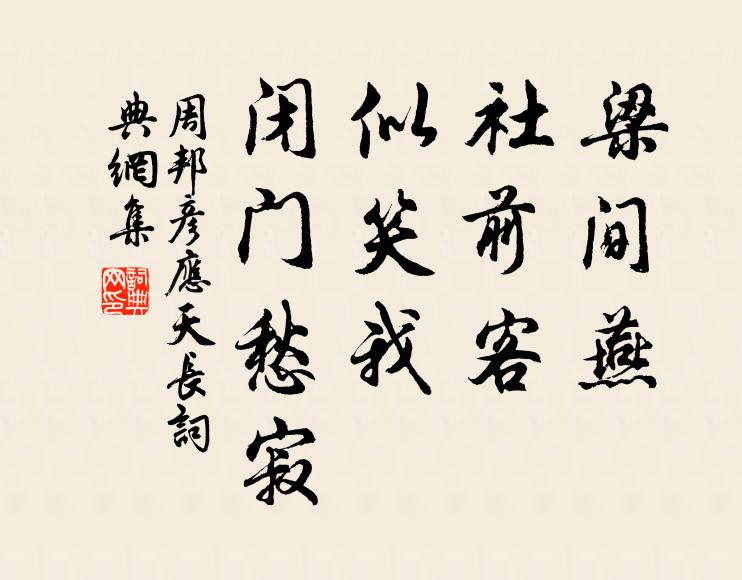 梁间燕
社前客
似笑我
闭门愁寂
周邦彦應天長詞
典網集
詞典网印